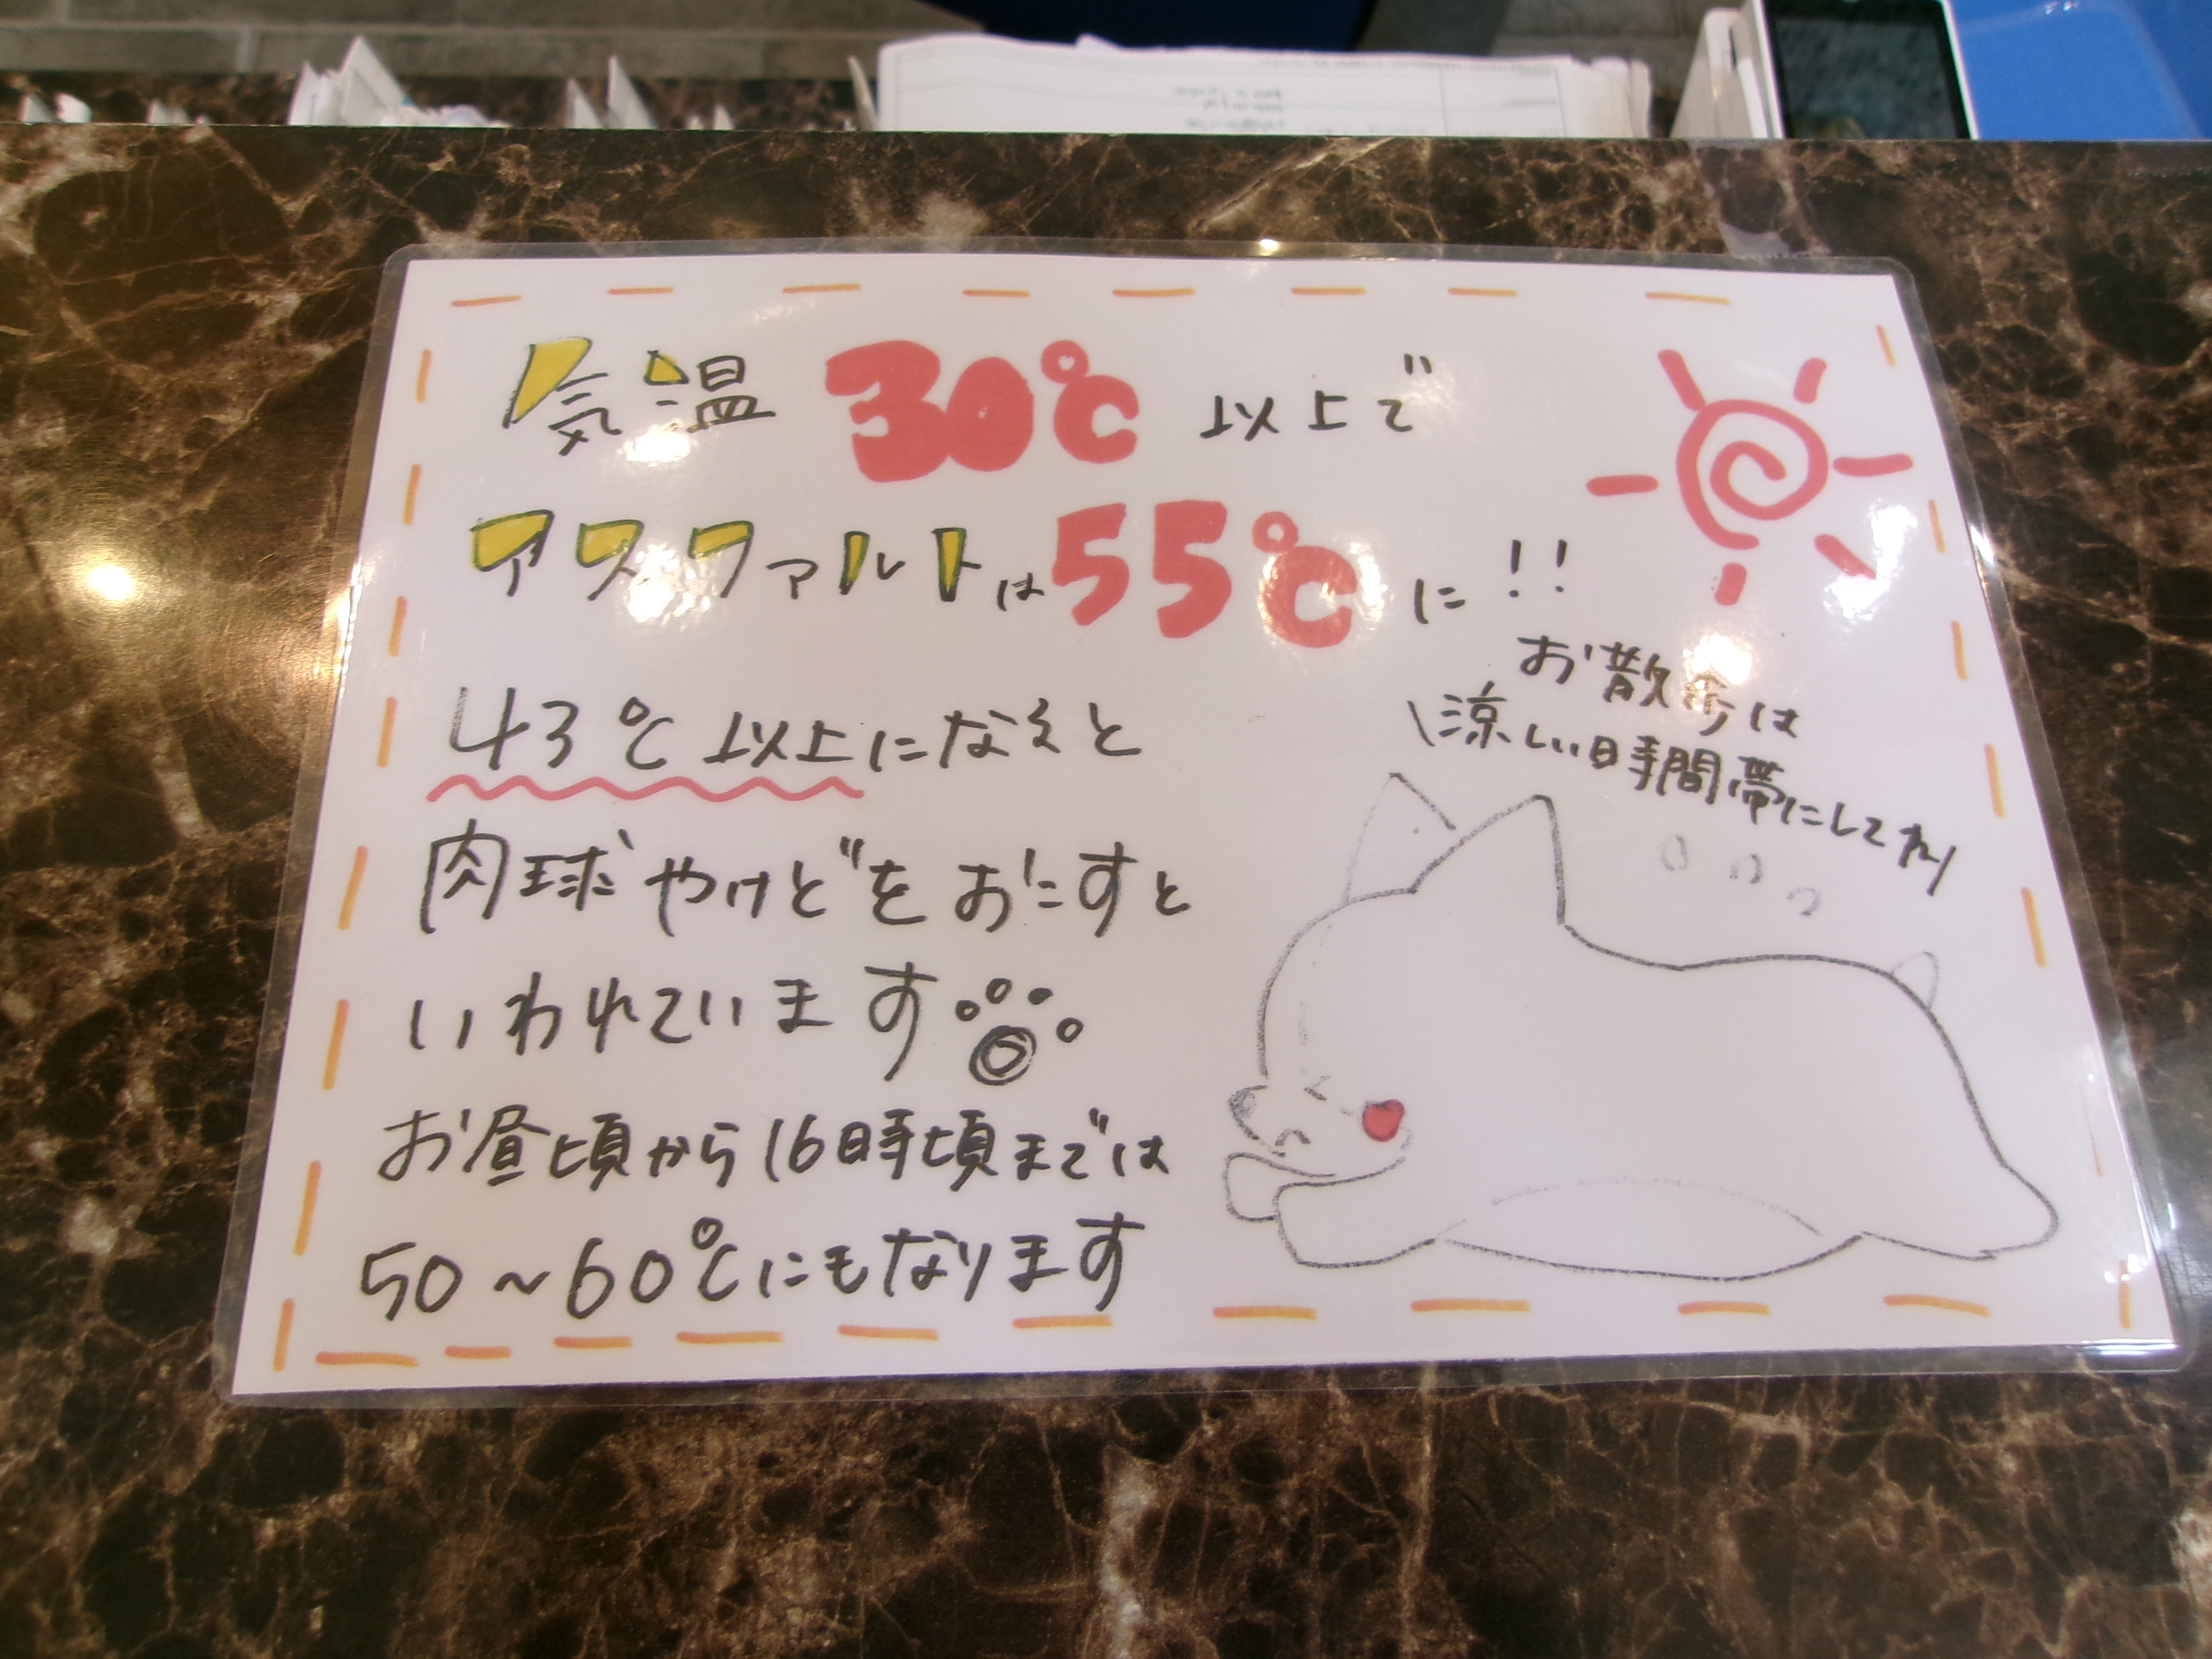 気温 30℃ 以上で
アスファルトは55℃に!!
お散歩は
涼しい時間帯にしてね
43℃以上になると
肉球やけどをおこすと
いわれています
お昼頃から16時頃までは
50~60℃にもなります